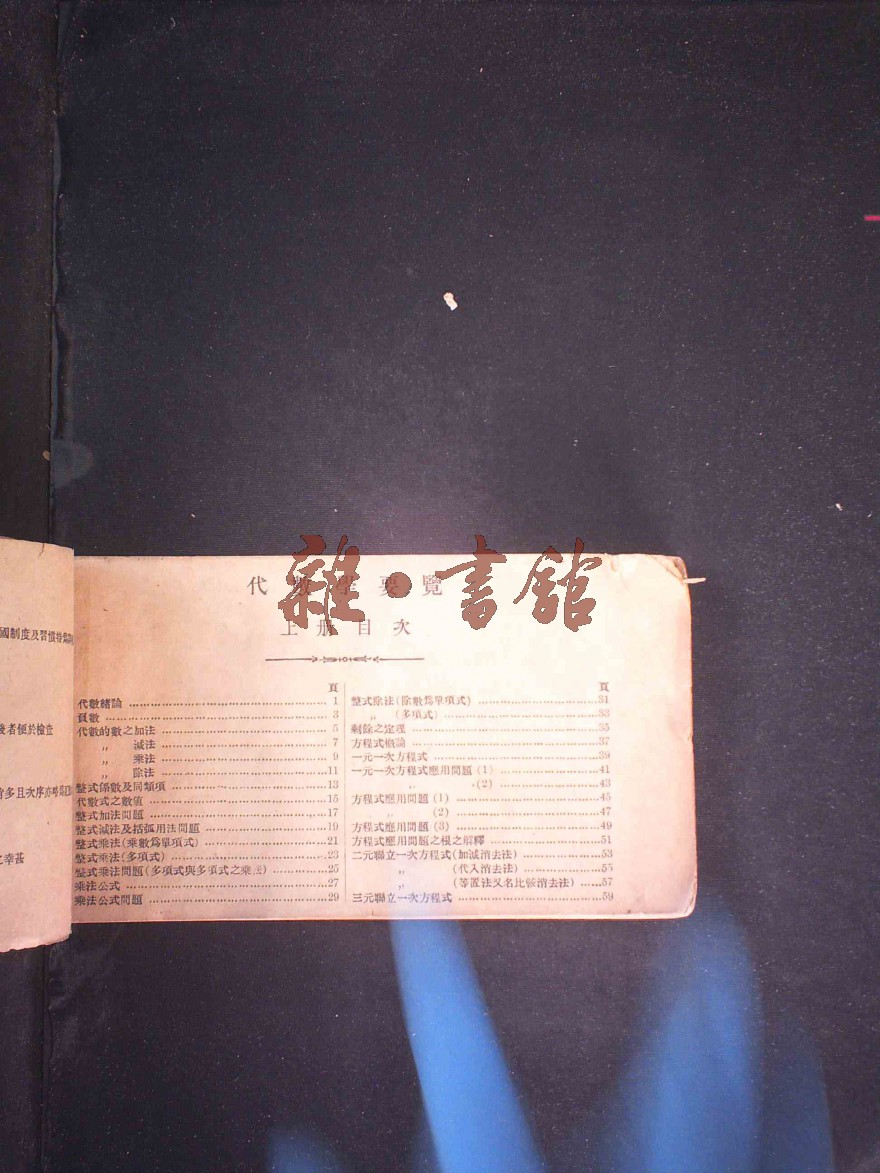 雜·書館
國制度及習慣
後者便於檢查
多且次序亦
之幸甚
代數學要覽
上册目次
頁
代數緒論 1
頁數 3
代數的數之加法 5
〃 減法 7
〃 乘法 9
〃 除法 11
整式係數及同類項 13
代數式之數値 15
整式加法問題 17
整式減法及括弧用法問題 19
整式乘法(乘數爲單項式) 21
整式乘法(多項式) 23
整式乘法問題(多項式與多項式之乘法) 25
乘法公式 27
乘法公式問題 29
頁
整式除法(除數爲單項式) 31
〃 (多項式) 33
剩餘之定理 35
方程式槪論 37
一元一次方程式 39
一元一次方程式應用問題(1) 41
〃 (2) 43
方程式應用問題(1) 45
〃 (2) 47
方程式應用問題(3) 49
方程式應用問題之根之解釋 51
二元聯立一次方程式(加減消去法) 53
〃 (代入消去法) 55
〃 (等置法又名比較消去法) 57
三元聯立一次方程式 59